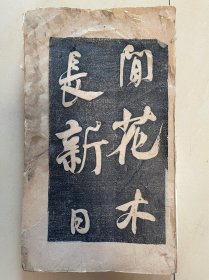 閒花木
長新日